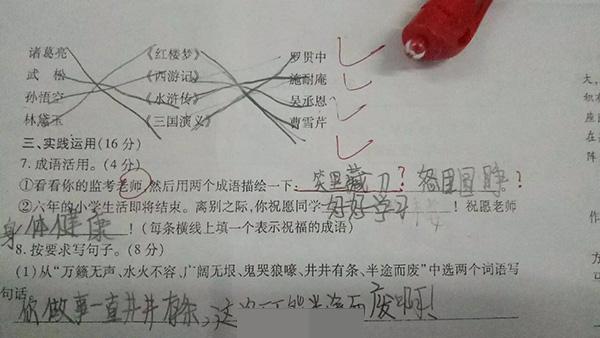 诸葛亮 《红楼梦》 罗贯中
武 松 《西游记》 施耐庵
孙悟空 《水浒传》 吴承恩
林黛玉 《三国演义》 曹雪芹
三、实践运用(16分)
7. 成语活用。(4分)
①看看你的监考老师,然后用两个成语描绘一下: 笑里藏刀? ?
②六年的小学生活即将结束。离别之际,你祝愿同学 好好学习 ! 祝愿老师
身体健康 ! (每条横线上填一个表示祝福的成语)
8. 按要求写句子。(8分)
(1)从“万籁无声、水火不容、广阔无垠、鬼哭狼嚎、井井有条、半途而废”中选两个词语写
句话
你做事一直井井有条,这 废啊!
大,
积
座
在
阵